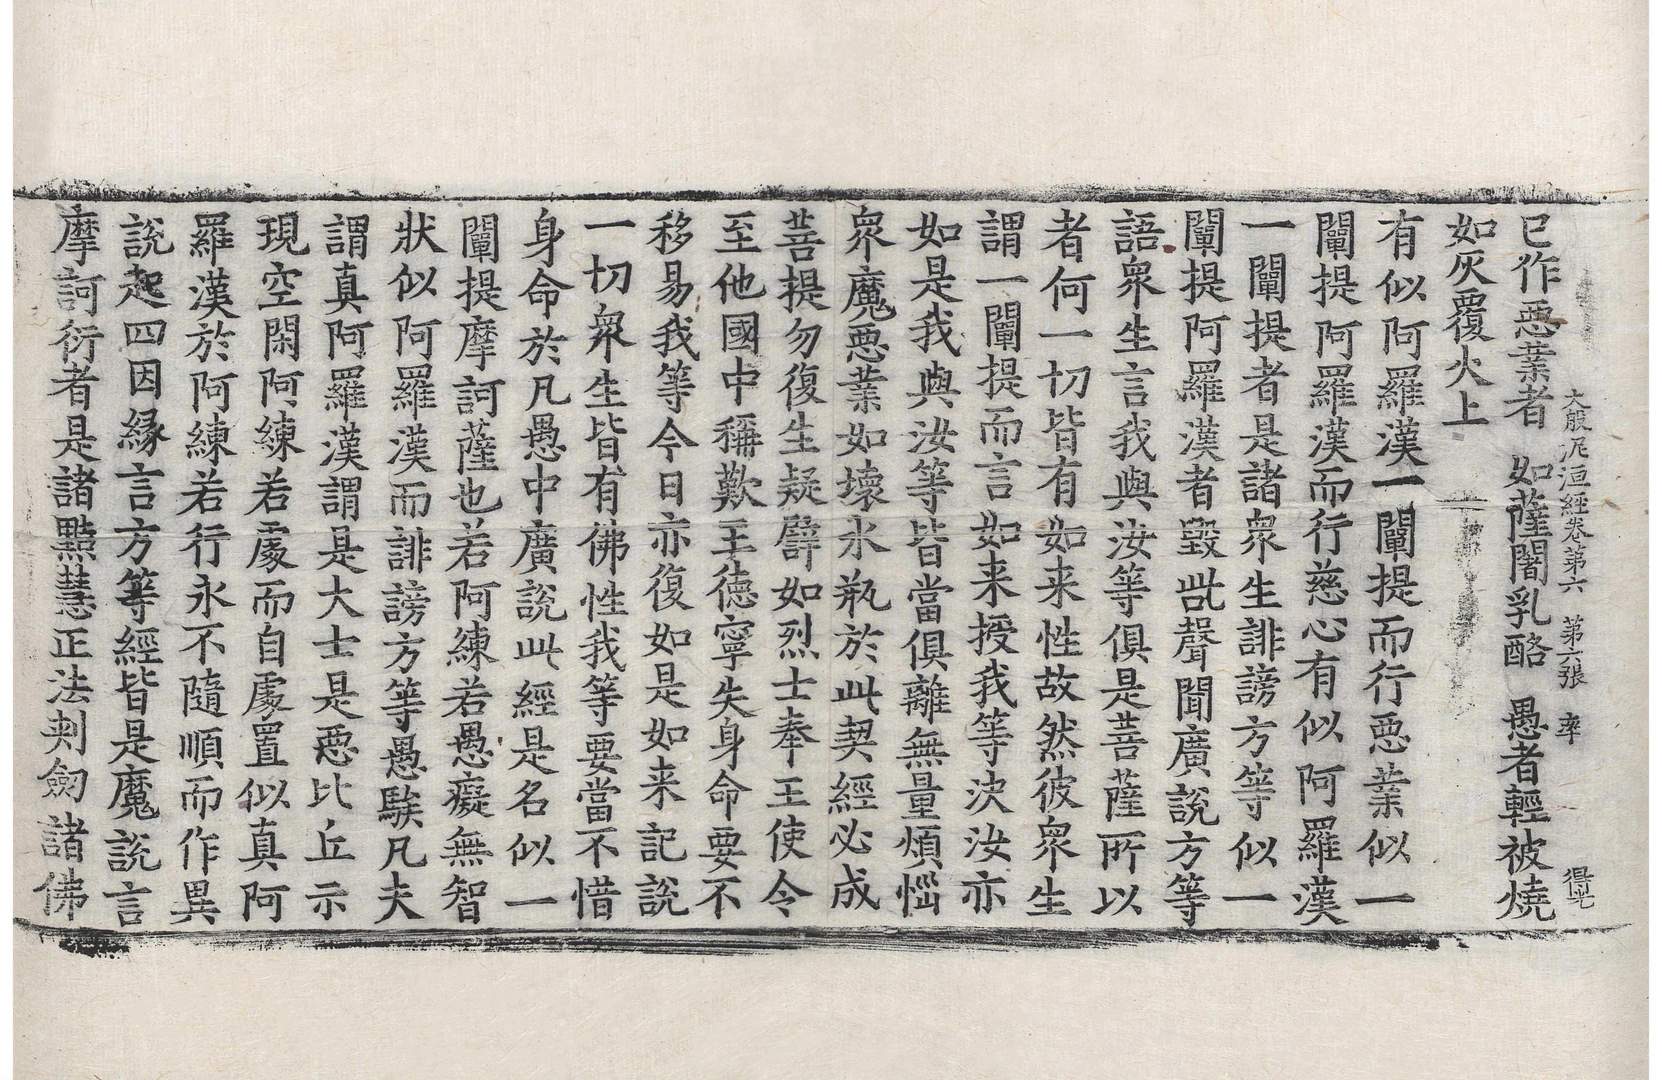 大般泥洹經卷第六　第六張　率　得光
已作惡業者　如薩闍乳酪　愚者輕被燒
如灰覆火上
有似阿羅漢一闡提而行惡業似一
闡提阿羅漢而行慈心有似阿羅漢
一闡提者是諸衆生誹謗方等似一
闡提阿羅漢者毀呰聲聞廣說方等
語衆生言我與汝等俱是菩薩所以
者何一切皆有如来性故然彼衆生
謂一闡提而言如来授我等决汝亦
如是我與汝等皆當俱離無量煩惱
衆魔惡業如壞水瓶於此契經必成
菩提勿復生疑譬如烈士奉王使令
至他國中稱歎王德寧失身命要不
移易我等今日亦復如是如来記說
一切衆生皆有佛性我等要當不惜
身命於凡愚中廣說此經是名似一
闡提摩訶薩也若阿練若愚癡無智
狀似阿羅漢而誹謗方等愚騃凡夫
謂真阿羅漢謂是大士是惡比丘示
現空閑阿練若處而自處置似真阿
羅漢於阿練若行永不隨順而作異
說起四因緣言方等經皆是魔說言
摩訶衍者是諸黠慧正法刾劒諸佛